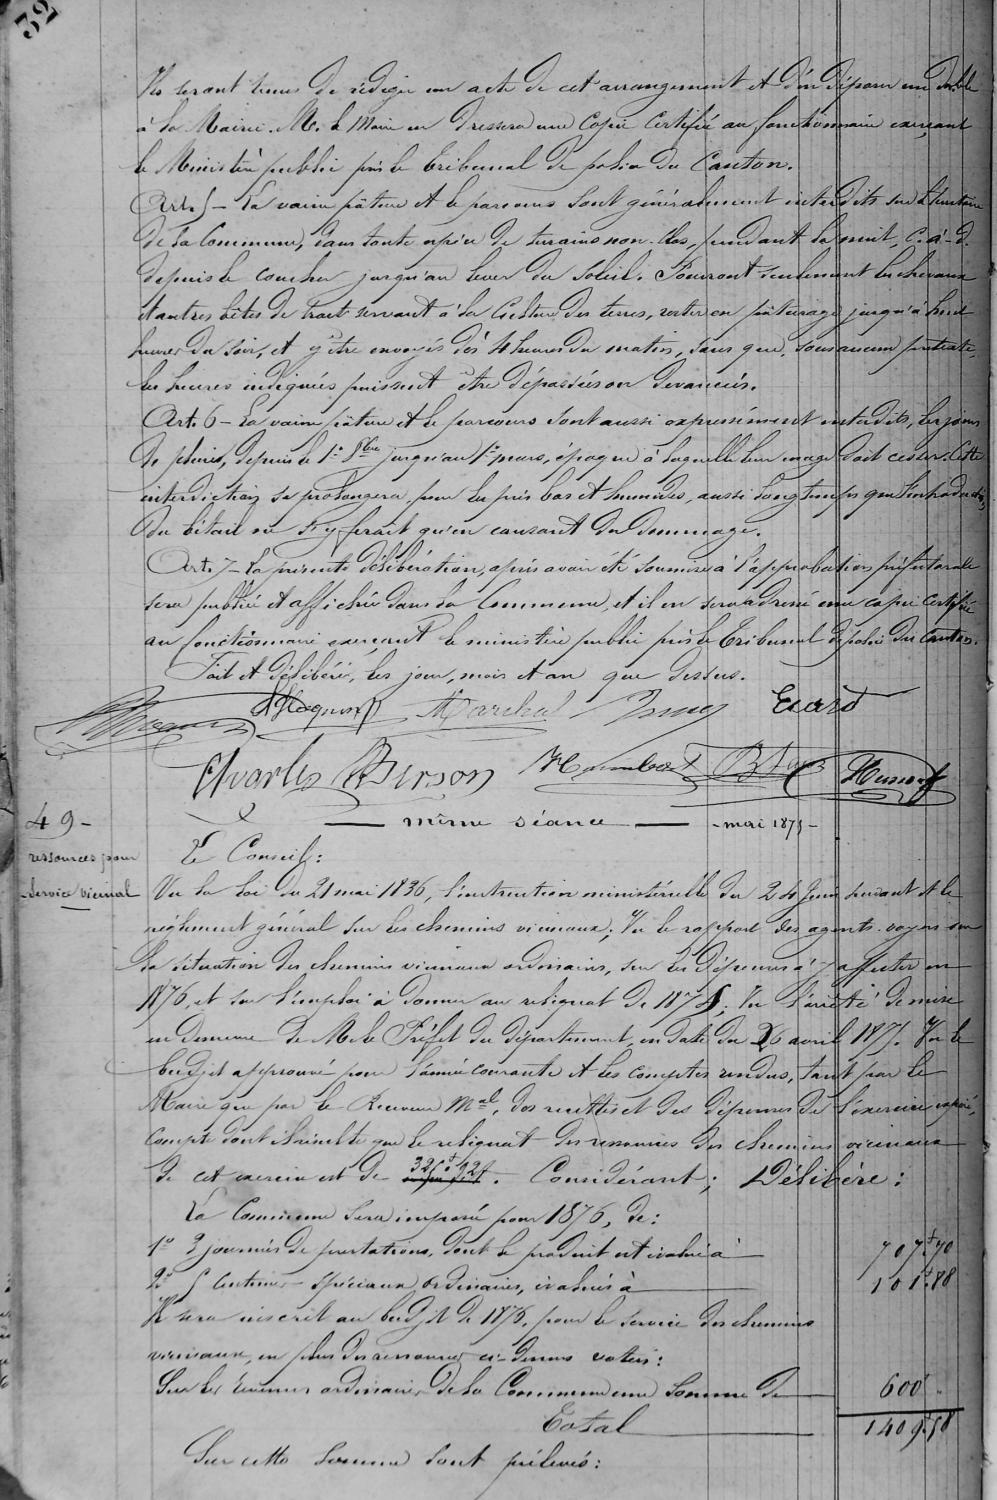 32
Ils seront tenus de rédiger un acte de cet arrangement et d'en déposer un double
à la Mairie. M. le Maire en dressera une copie certifiée au fonctionnaire exerçant
le Ministère public près le tribunal de police du Canton.
Art. 5 - La vaine pâture et le parcours sont généralement interdits sur le territoire
de la Commune, dans toute espèce de terrains non-clos, pendant la nuit, c.-à-d.
depuis le coucher jusqu'au lever du soleil. Pourront seulement les chevaux
et autres bêtes de trait servant à la culture des terres, rester en pâturage jusqu'à huit
heures du soir, et y être envoyés dès 4 heures du matin, sans que, sous aucun prétexte,
les heures indiquées puissent être dépassées ou devancées.
Art. 6 - La vaine pâture et le parcours sont aussi expressément interdits, les jours
de pluies, depuis le 1er 8bre jusqu'au 1er mars, époque à laquelle leur usage doit cesser. Cette
interdiction se prolongera, pour les prés bas et humides, aussi longtemps que l'introduction
du bétail ne s'y ferait qu'en causant du dommage.
Art. 7 - La présente délibération, après avoir été soumise à l'approbation préfectorale
sera publiée et affichée dans la Commune, et il en sera adressé une copie certifiée
au fonctionnaire exerçant le ministère public près le Tribunal de police du Canton.
Fait et Délibéré, les jour, mois et an que dessus.
Marchal Ecard
Charles Birson Humbert
49 -
ressources pour
service vicinal
— même séance — - mai 1875 -
Le Conseil:
Vu la loi du 21 mai 1836, l'instruction ministérielle du 24 Juin suivant et le
règlement général sur les chemins vicinaux; Vu le rapport des agents-voyers sur
la situation des chemins vicinaux ordinaires, sur les dépenses à y affecter en
1876, et sur l'emploi à donner au reliquat de 1874; Vu l'arrêté de mise
en demeure de M. le Préfet du département, en date du 26 avril 1875. Vu le
budget approuvé pour l'année courante et les comptes rendus, tant par le
Maire que par le Receveur Mal, des recettes et des dépenses de l'exercice expiré,
compte dont il résulte que le reliquat des ressources des chemins vicinaux
de cet exercice est de . Considérant; Délibère:
La Commune sera imposée pour 1876, de:
1° 3 journées de prestations, dont le produit est évalué à 707f.70
2° 5 Centimes spéciaux ordinaires, évalués à 101f.88
Il sera inscrit au budget de 1876, pour le service des chemins
vicinaux, en plus des ressources ci-dessus votées:
Sur les revenus ordinaires de la Commune une somme de 600 .
Total 1409.58
Sur cette somme sont prélevés: